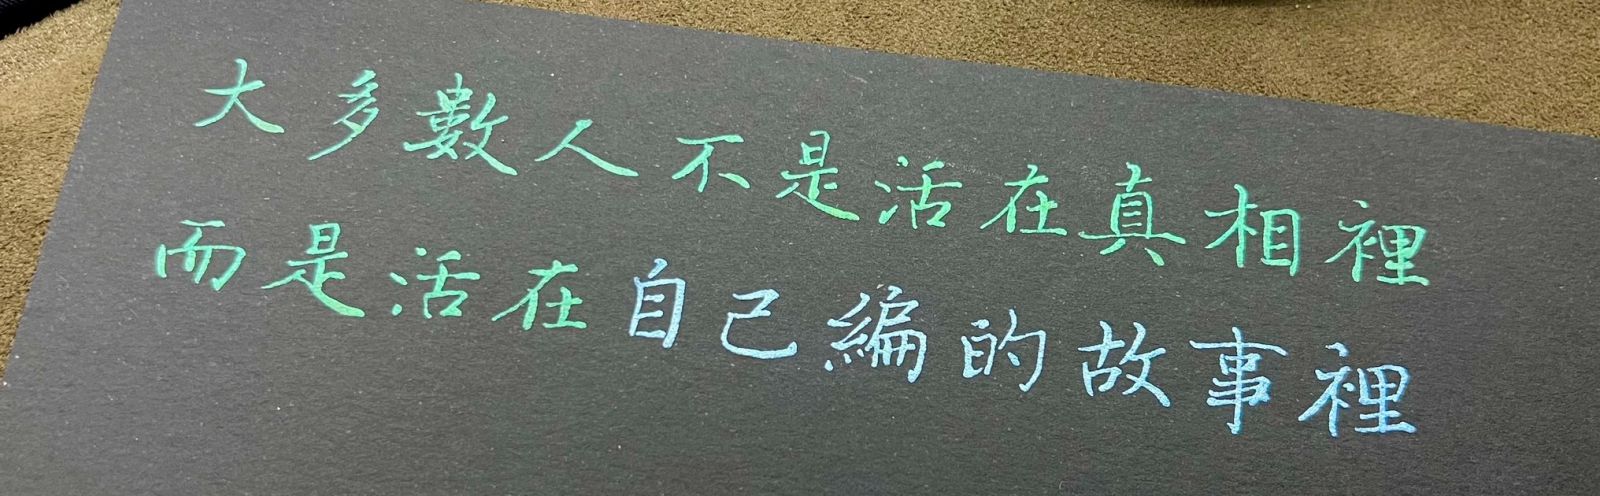 大多數人不是活在真相裡
而是活在自己編的故事裡